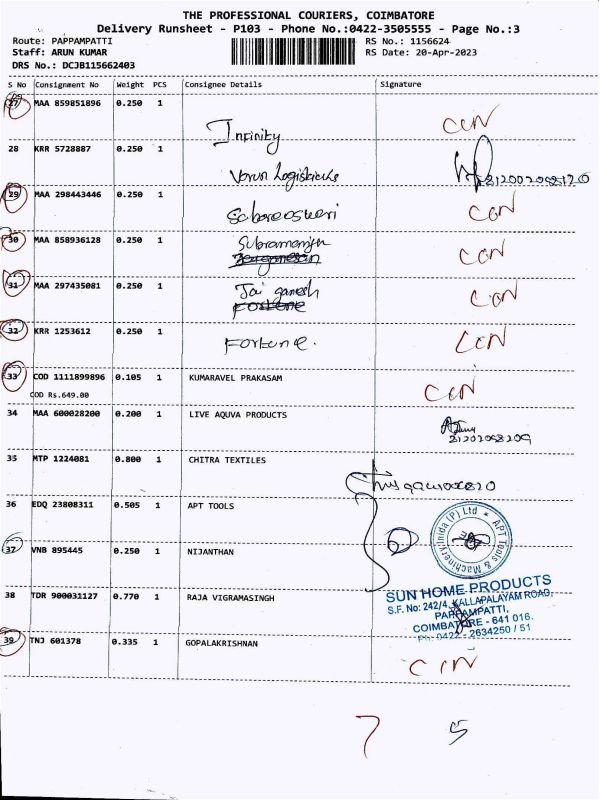 THE PROFESSIONAL COURIERS, COIMBATORE
Delivery Runsheet - P103 - Phone No.:0422-3505555 - Page No.:3
Route: PAPPAMPATTI RS No.: 1156624
Staff: ARUN KUMAR RS Date: 20-Apr-2023
DRS No.: DCJB115662403
S No Consignment No Weight PCS Consignee Details Signature
27 MAA 859851896 0.250 1 Infinity
28 KRR 5728887 0.250 1 Varun Logisticks
29 MAA 298443446 0.250 1
30 MAA 858936128 0.250 1
31 MAA 297435081 0.250 1 Jai ganesh
Fortune
32 KRR 1253612 0.250 1 Fortune.
33 COD 1111899896 0.105 1 KUMARAVEL PRAKASAM
COD Rs.649.00
34 MAA 600028200 0.200 1 LIVE AQUVA PRODUCTS
35 MTP 1224081 0.800 1 CHITRA TEXTILES
36 EDQ 23808311 0.505 1 APT TOOLS
APT Tools & Machinery Inida (P) Ltd
37 VNB 895445 0.250 1 NIJANTHAN
38 TDR 900031127 0.770 1 RAJA VIGRAMASINGH
SUN HOME PRODUCTS
S.F. No: 242/4, KALLAPALAYAM ROAD,
PAPPAMPATTI,
COIMBATORE - 641 016.
Ph: 0422 - 2634250 / 51
39 TNJ 601378 0.335 1 GOPALAKRISHNAN
7 5